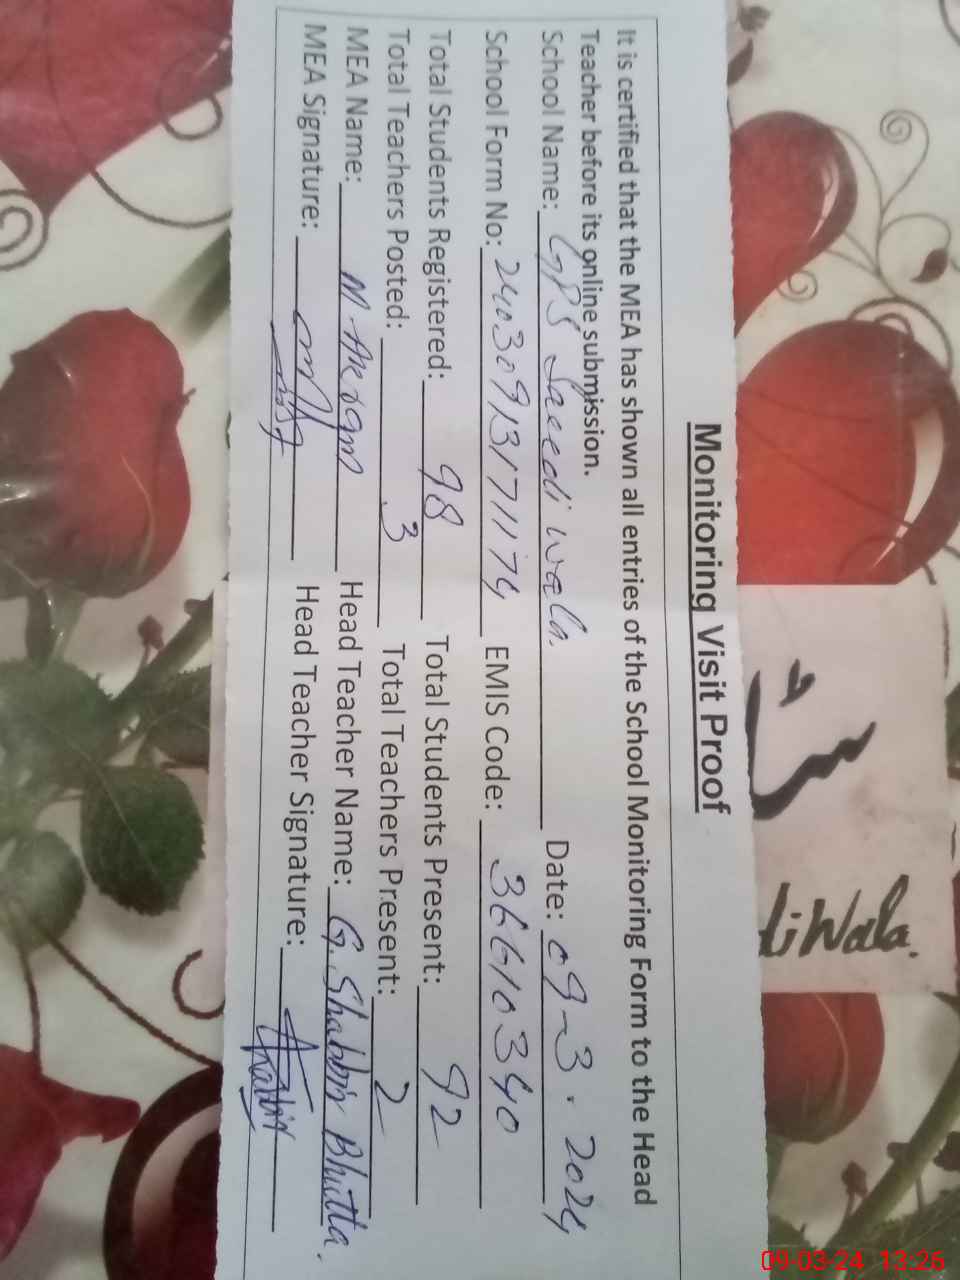 Monitoring Visit Proof
It is certified that the MEA has shown all entries of the School Monitoring Form to the Head
Teacher before its online submission.
School Name: GPS Saeedi wala. Date: 09-3.2024
School Form No: EMIS Code: 36610340
Total Students Registered: 98 Total Students Present: 92
Total Teachers Posted: 3 Total Teachers Present: 2
MEA Name: Head Teacher Name: G. Shabbir Bhutta.
MEA Signature: Head Teacher Signature:
diWala.
09-03-24 13:26